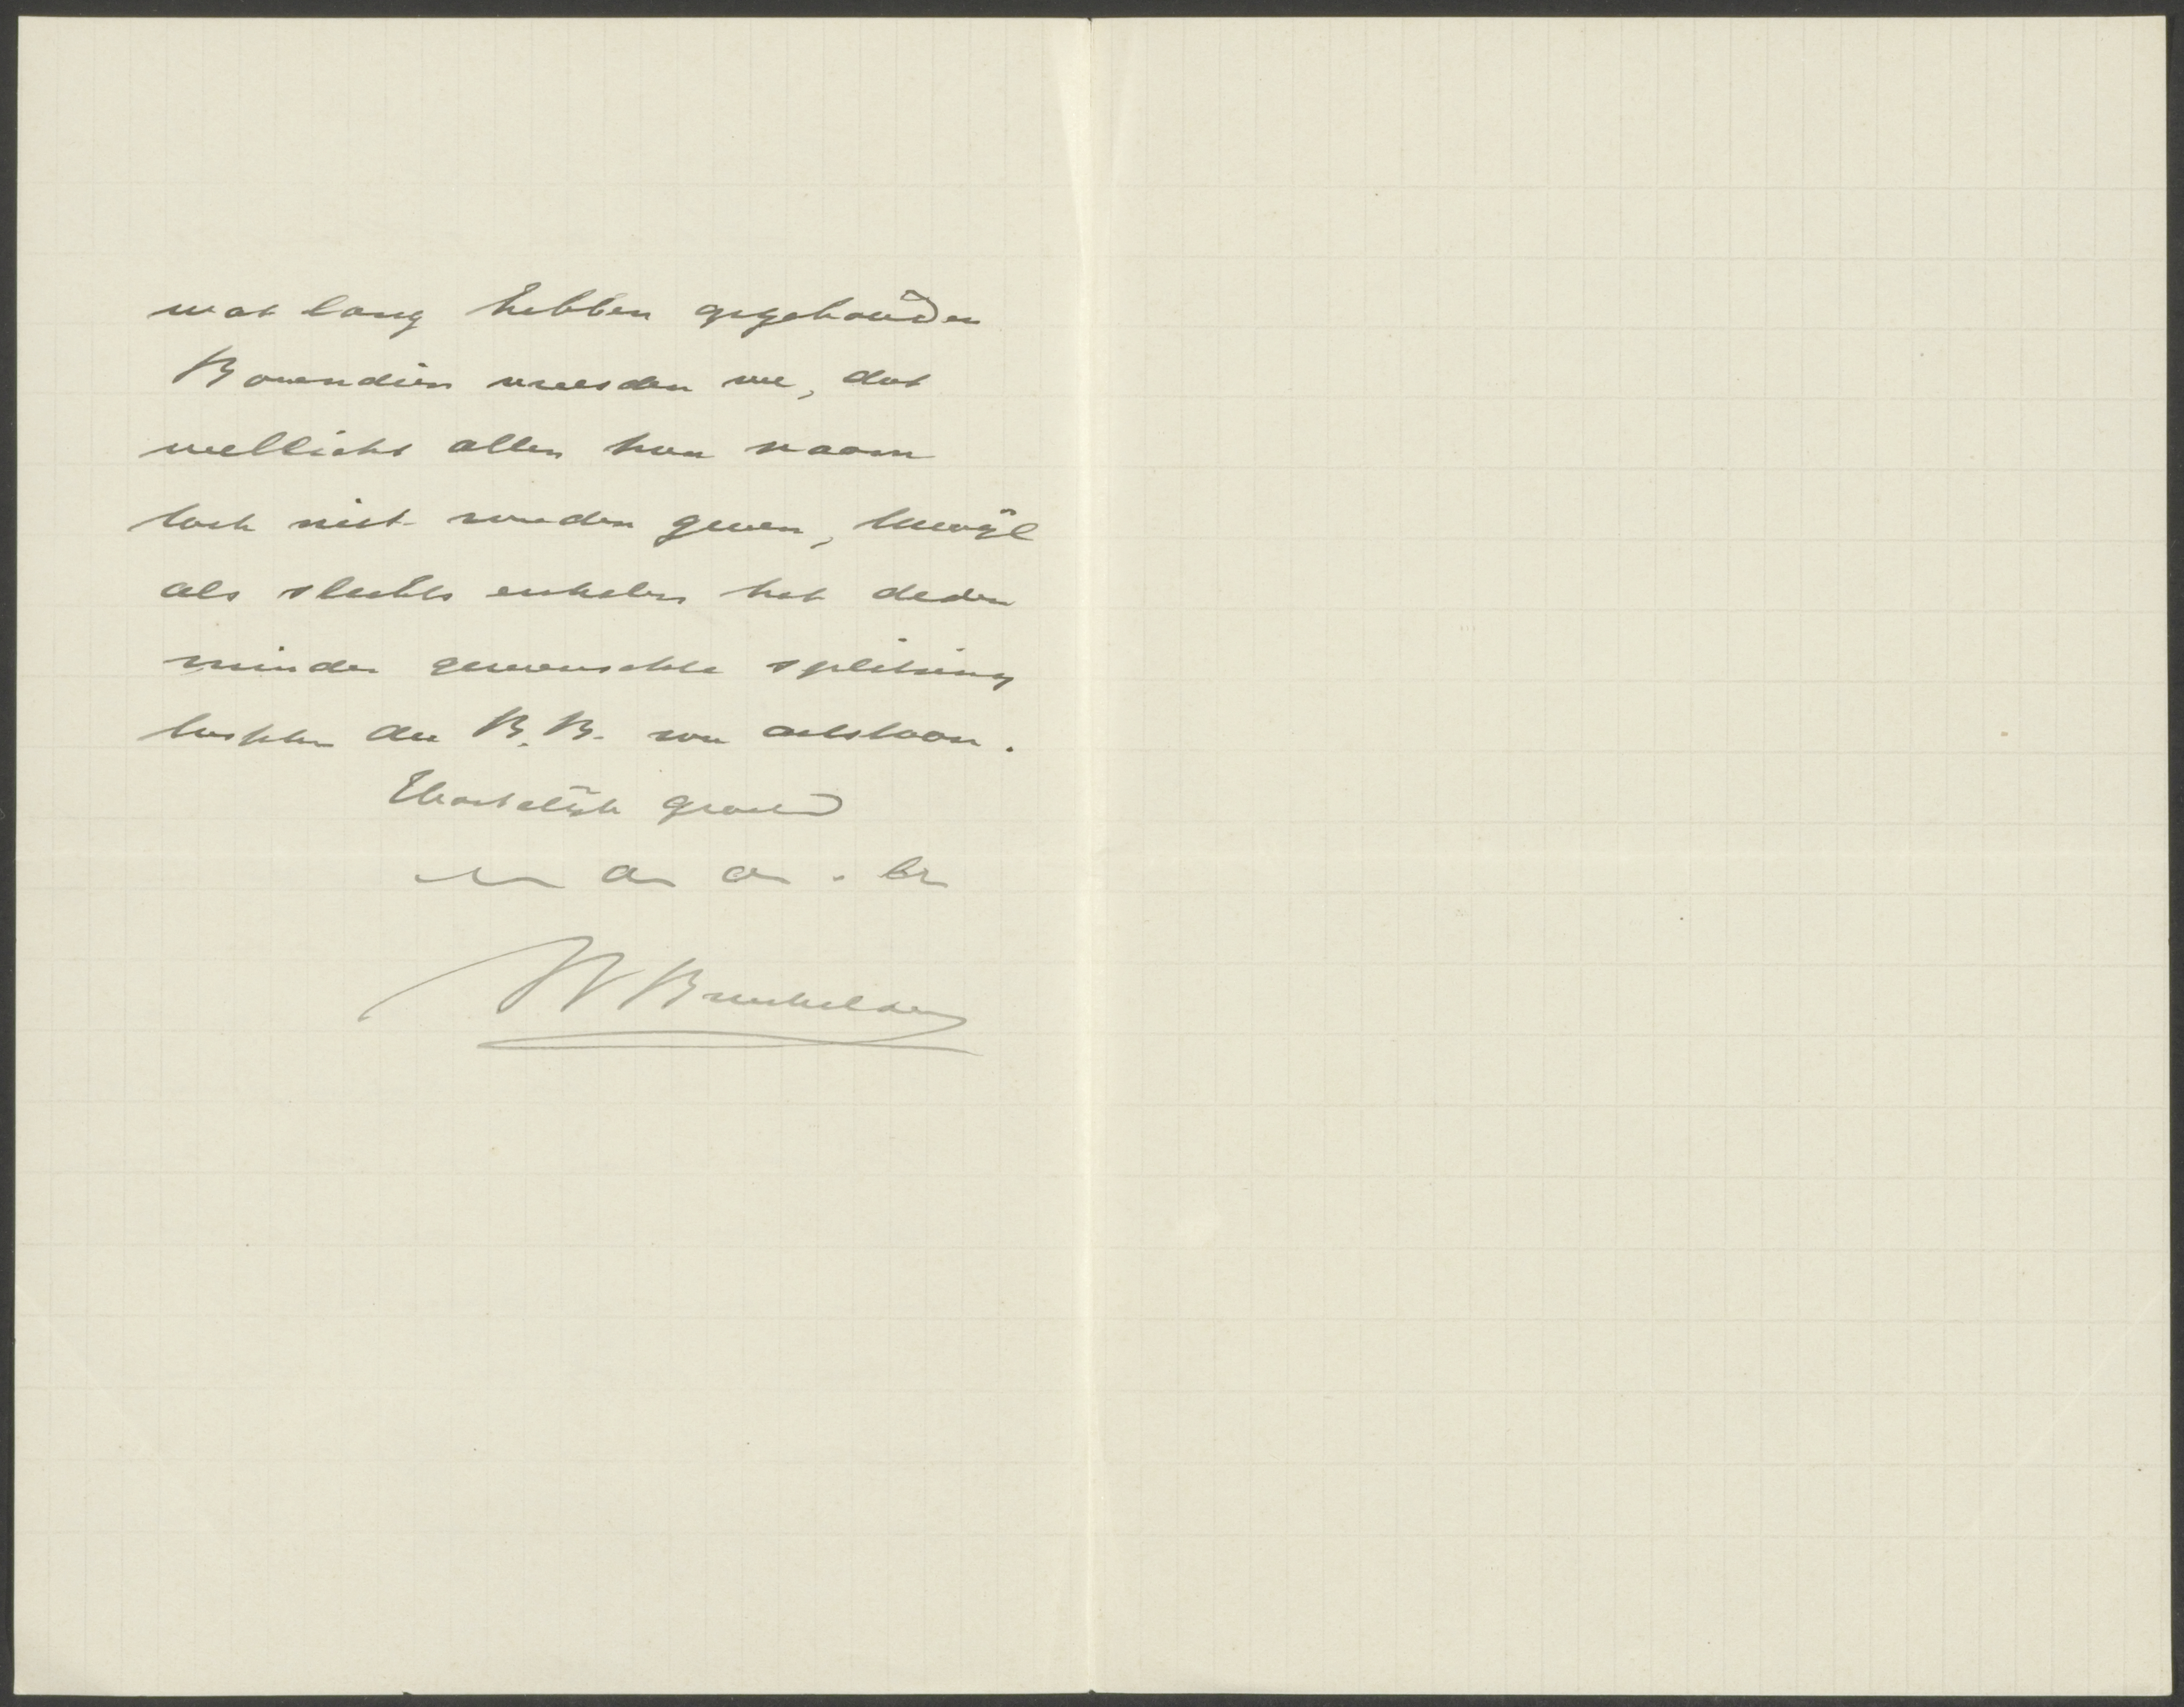 wat lang hebben opgehouden
Bovendien vreesden we, dat
wellicht allen hun naam
toch niet zouden geven, terwijl
als slechts enkelen het deden
minder gewenschte splitsing
tusschen de B.B. zou ontstaan.
Hartelijk groetend
uw a. a. br
W Breukelaar